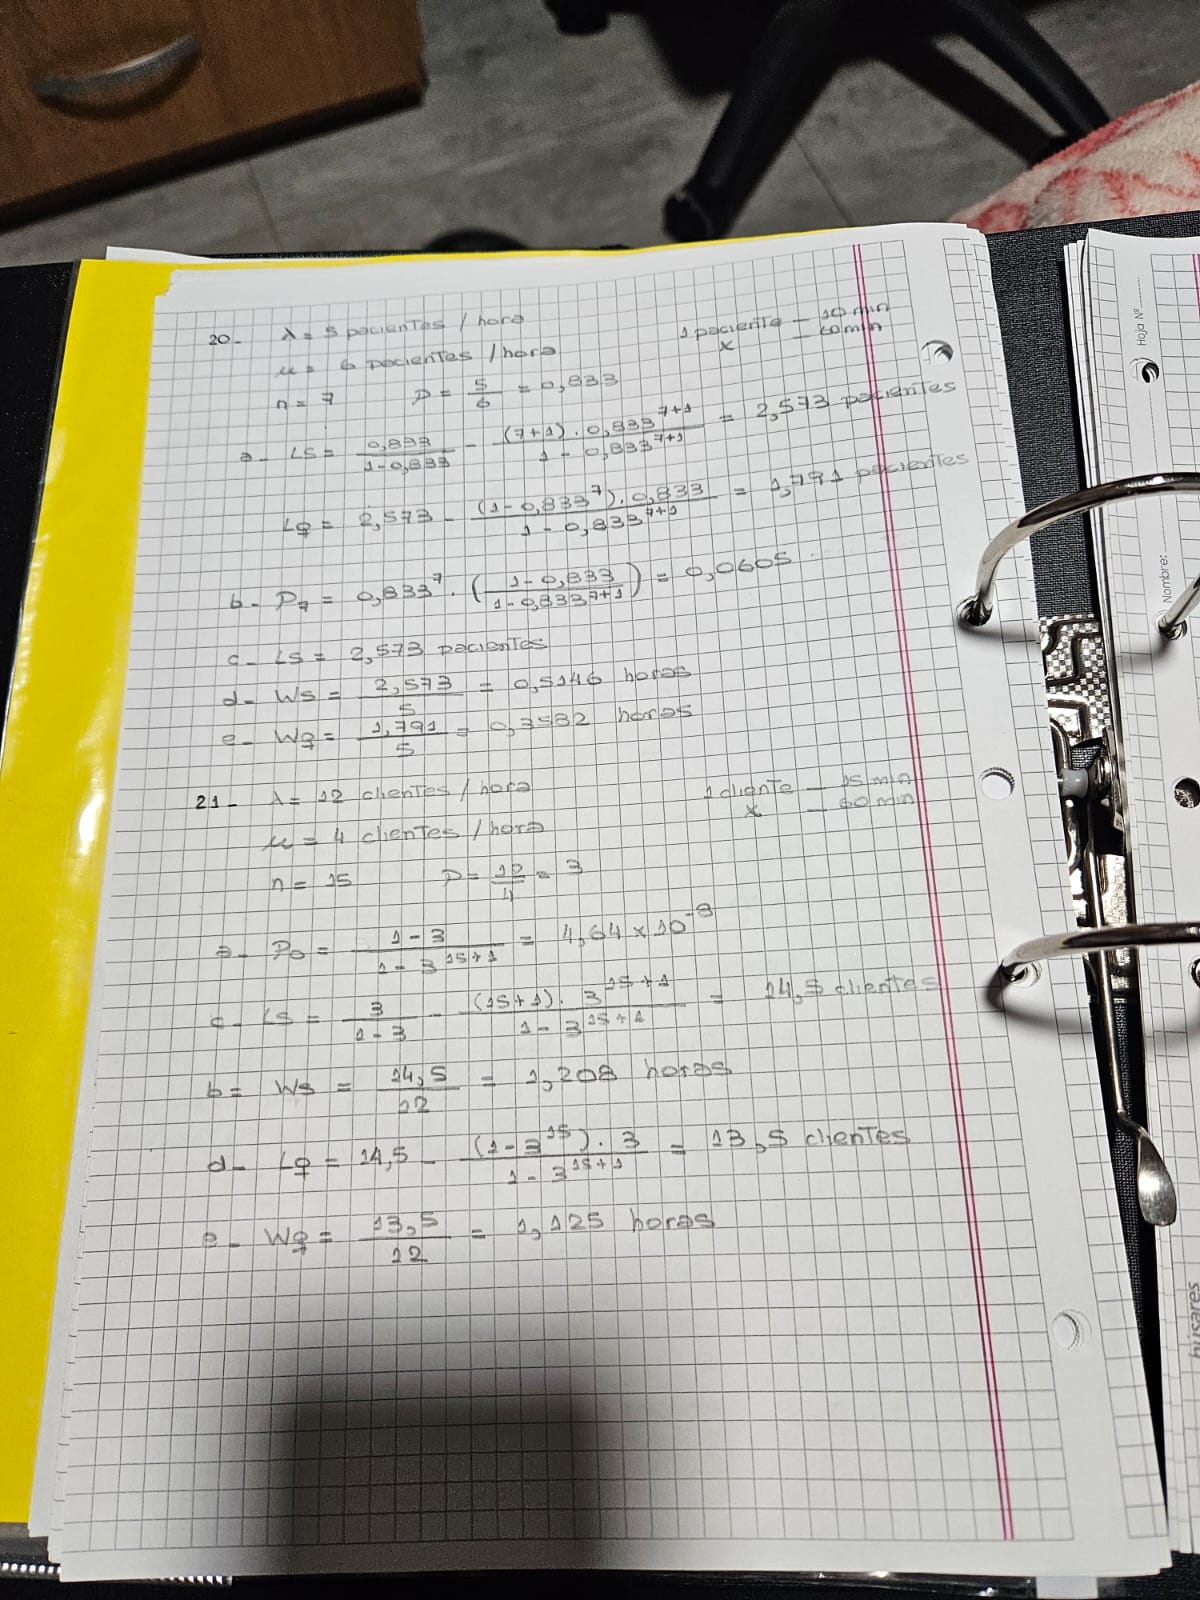 20- λ = 5 pacientes / hora
1 paciente — 10 min
μ = 6 pacientes / hora
x — 60 min
n = 7 P = 5/6 = 0,833
a- Ls = 0,833/(1-0,833) - (7+1).0,833^(7+1)/(1-0,833^(7+1)) = 2,573 pacientes
Lq = 2,573 - (1-0,833^7).0,833/(1-0,833^(7+1)) = 1,791 pacientes
b- P7 = 0,833^7 . ((1-0,833)/(1-0,833^(7+1))) = 0,0605
c- Ls = 2,573 pacientes
d- Ws = 2,573/5 = 0,5146 horas
e- Wq = 1,791/5 = 0,3582 horas
21- λ = 12 clientes / hora
1 cliente — 15 min
μ = 4 clientes / hora
x — 60 min
n = 15 P = 12/4 = 3
a- P0 = (1-3)/(1-3^(15+1)) = 4,64 x 10^-8
c- Ls = 3/(1-3) - (15+1).3^(15+1)/(1-3^(15+1)) = 14,5 clientes
b= Ws = 14,5/12 = 1,208 horas
d- Lq = 14,5 - (1-3^15).3/(1-3^(15+1)) = 13,5 clientes
e- Wq = 13,5/12 = 1,125 horas
Hoja Nº
Nombre:
húsares